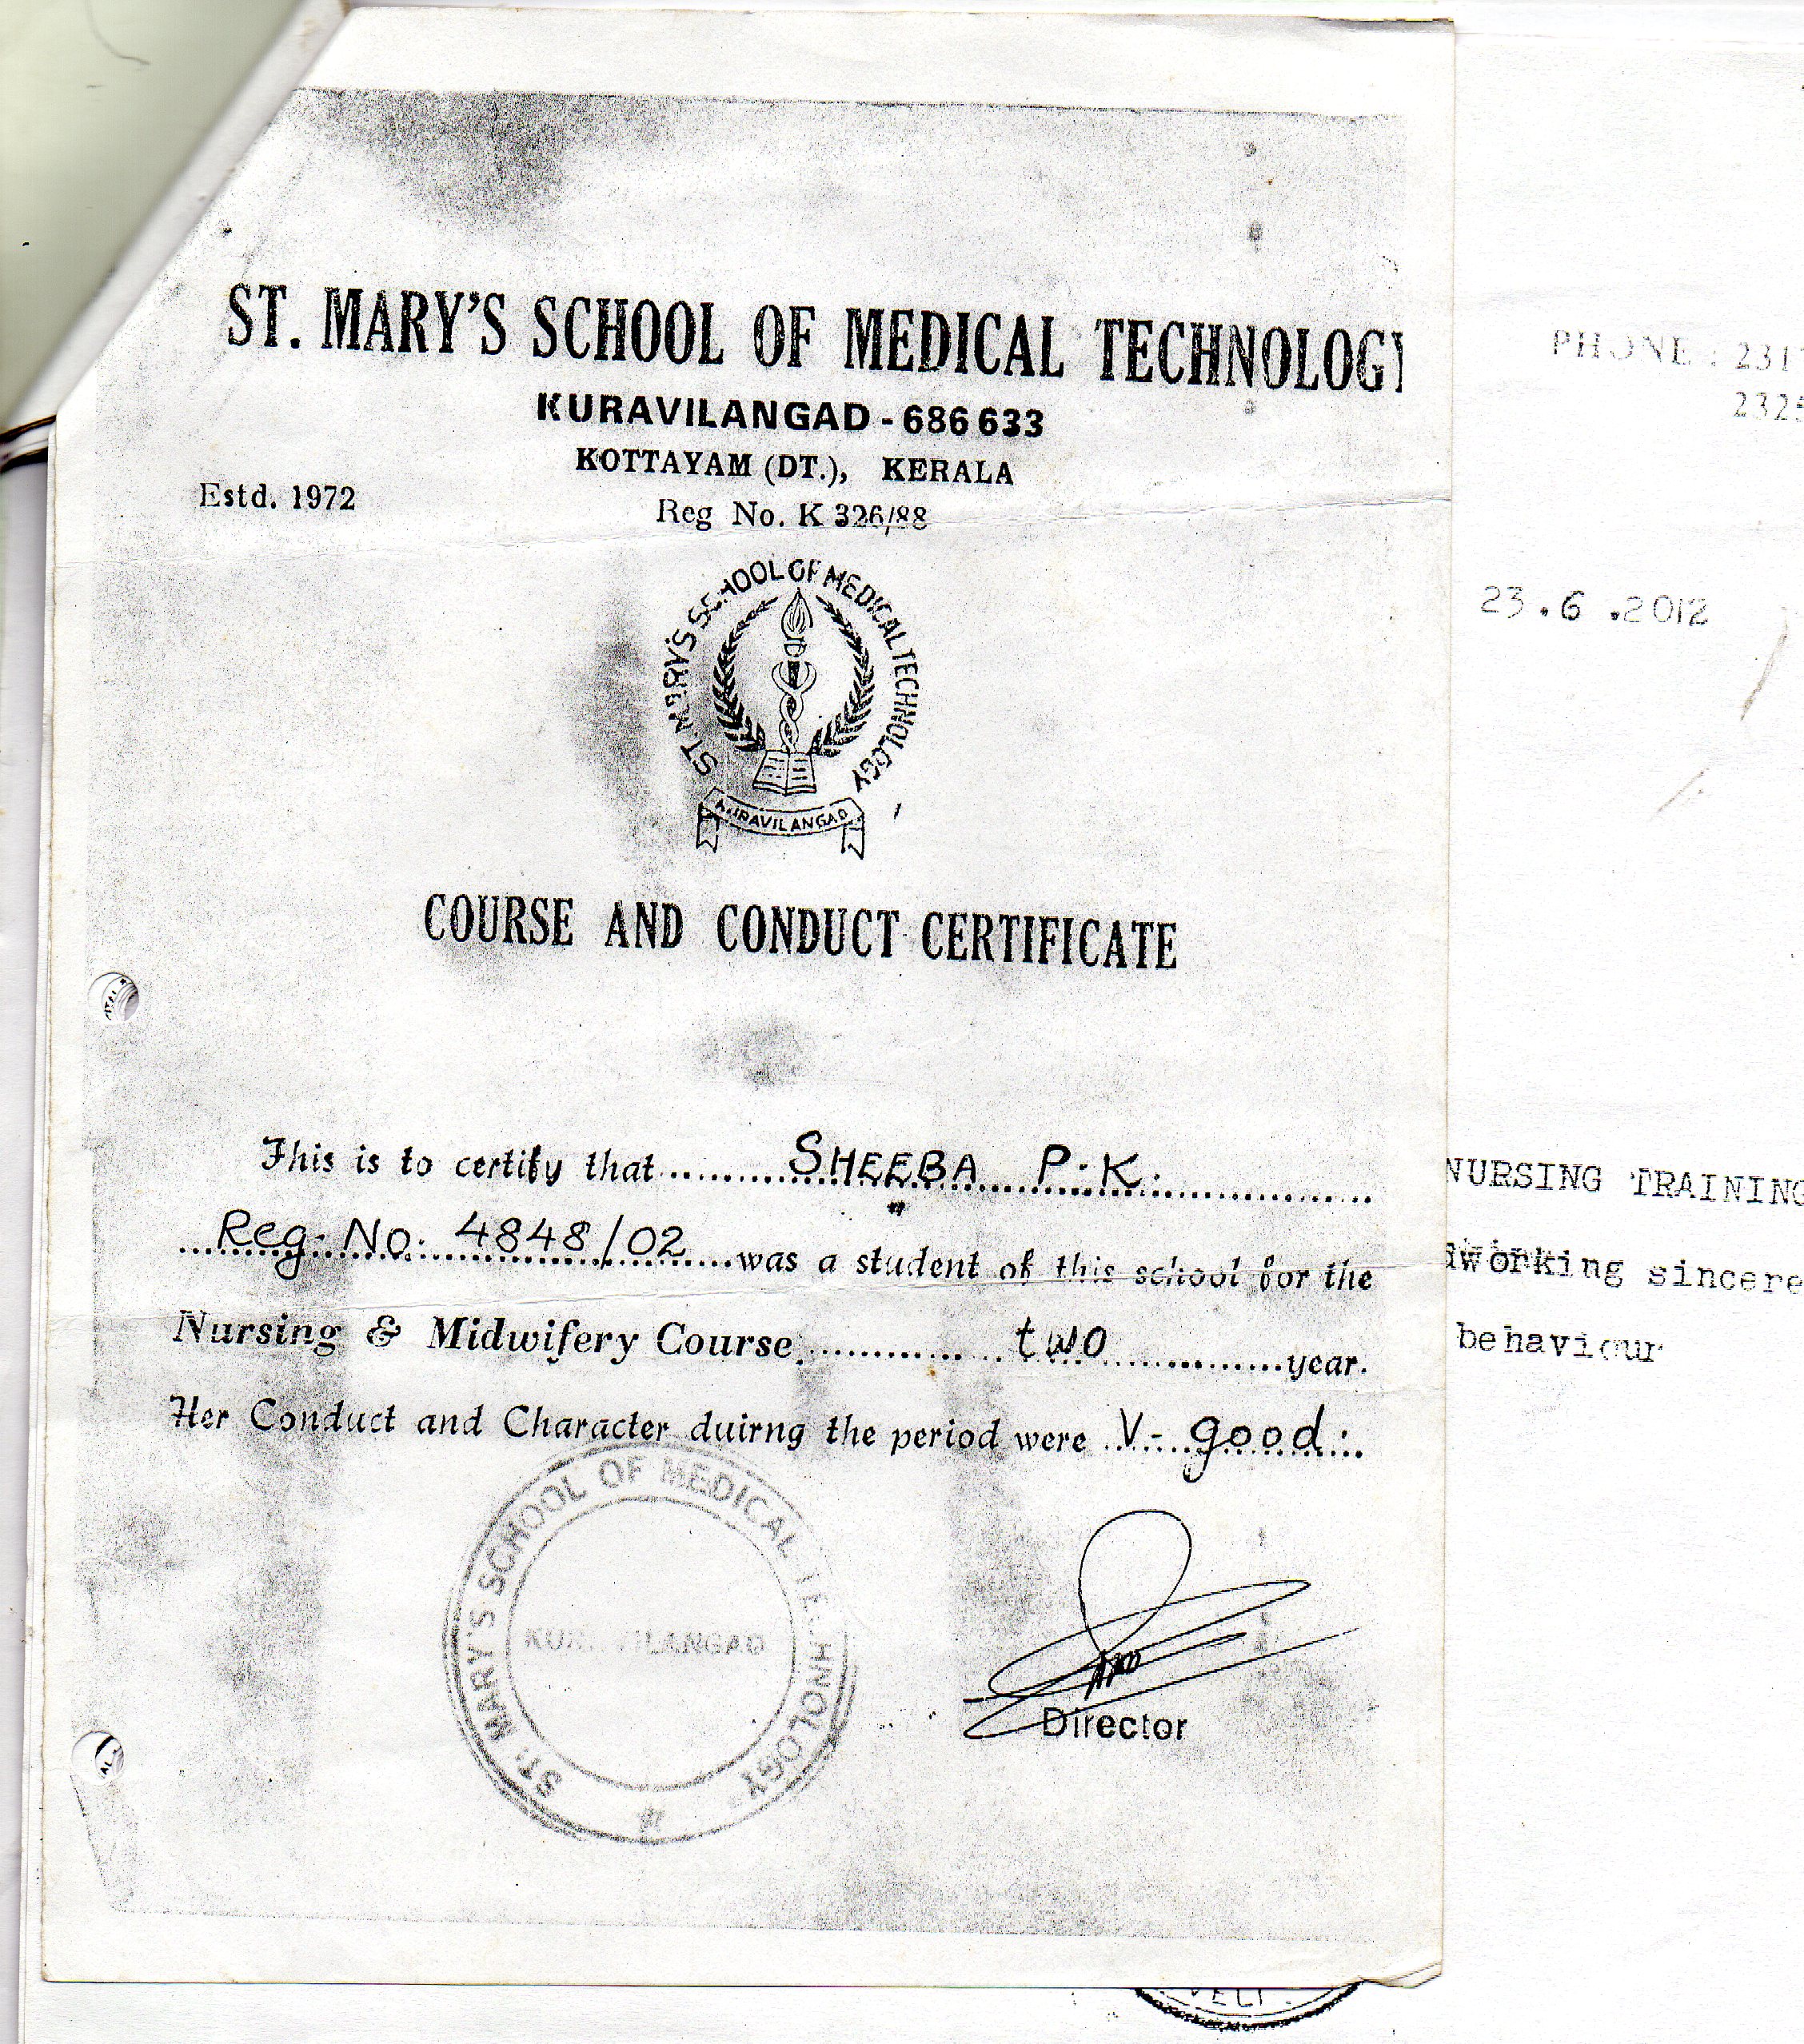 ST. MARY'S SCHOOL OF MEDICAL TECHNOLOGY
KURAVILANGAD - 686 633
KOTTAYAM (DT.), KERALA
Estd. 1972
Reg No. K 326/88
ST. MARY'S SCHOOL OF MEDICAL TECHNOLOGY
KURAVILANGAD
COURSE AND CONDUCT CERTIFICATE
This is to certify that SHEEBA P.K.
Reg. No. 4848/02 was a student of this school for the
Nursing & Midwifery Course two year.
Her Conduct and Character duirng the period were V. good.
ST. MARY'S SCHOOL OF MEDICAL TECHNOLOGY
KURAVILANGAD
Director
PHONE : 231
232
23.6.2012
NURSING TRAINING
working sincere
behaviour